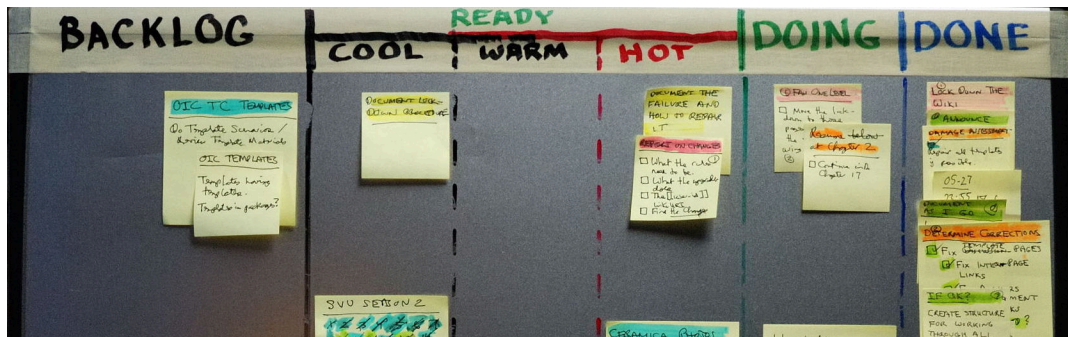 BACKLOG
READY
COOL
WARM
HOT
DOING
DONE
OIC TC TEMPLATES
Do Template Service /
Template Materials
OIC TEMPLATES
Templates having
templates.
DOCUMENT LOCK-
DOWN PROCEDURE
SVU SESSION 2
DOCUMENT THE
FAILURE AND
HOW TO REPAIR
IT
REPORT ON CHANGES
What the rules
need to be.
What the upgrade
does
The
Find the Changes
CERAMICA PHOTOS
FAN ONE LEVEL
Move the link-
down to those
the
below
at Chapter 2
Continue with
Chapter 17
LOCK DOWN THE
WIKI
ANNOUNCE
DAMAGE ASSESSMENT
repair all templates
if possible.
05-27
22:55
DOCUMENT
AS I GO
DETERMINE CORRECTIONS
TEMPLATE
FIX PAGES
FIX INTER-PAGE
LINKS
IF OK?
CREATE STRUCTURE
FOR WORKING
THROUGH ALL